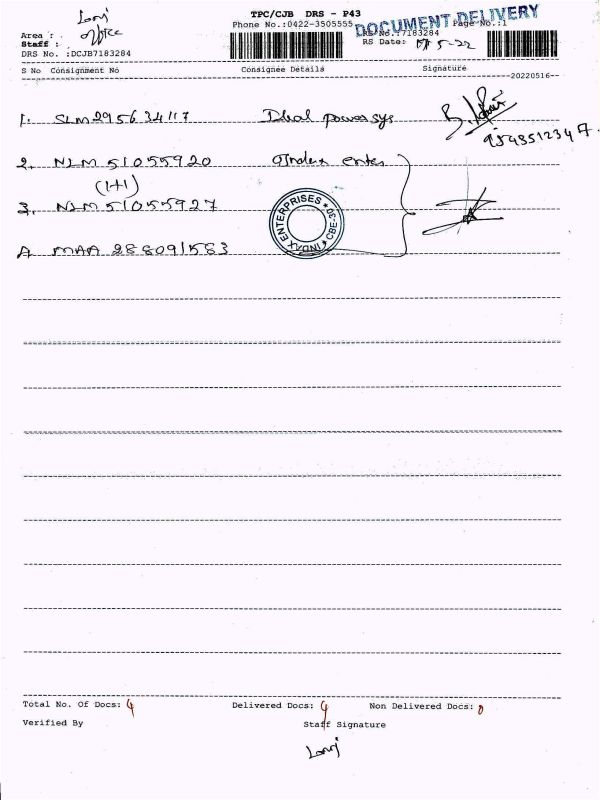 TPC/CJB DRS - P43
Phone No.:0422-3505555
DOCUMENT DELIVERY
Page No.:1
Area :
office
Staff :
DRS No. :DCJB7183284
RS No.:7183284
RS Date: 5-22
S No Consignment No Consignee Details Signature
20220516
1. SLM295634117 Ideal power sys
9548512347
2. NLM51055920 Index enter
(1+1)
3. NLM51055927
INDAX ENTERPRISES * CBE-30 *
4 MAA 288091583
Total No. Of Docs: 4 Delivered Docs: 4 Non Delivered Docs: 0
Verified By Staff Signature